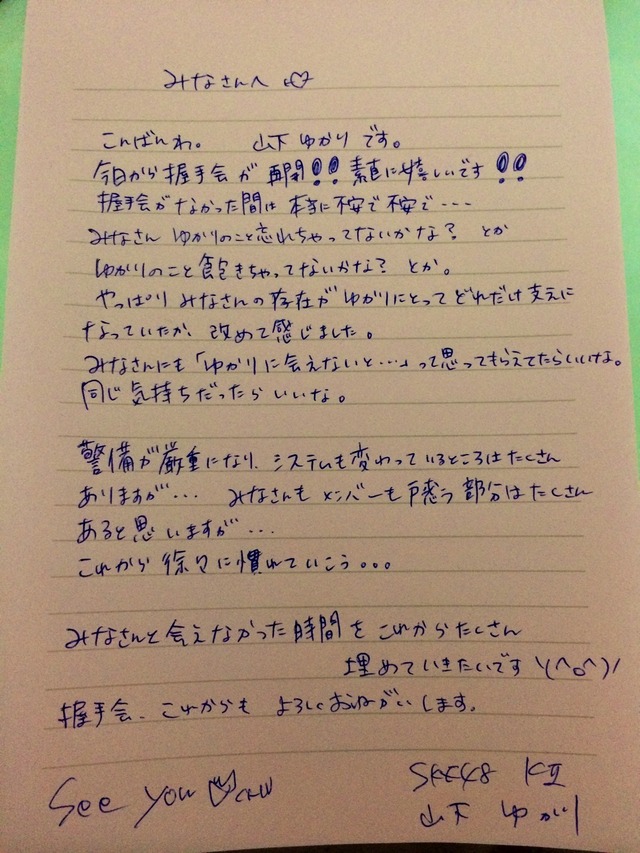 みなさんへ ♡
こんばんわ。 山下ゆかりです。
今日から握手会が再開!! 素直に嬉しいです!!
握手会がなかった間は本当に不安で不安で・・・
みなさん ゆかりのこと忘れちゃってないかな? とか
ゆかりのこと飽きちゃってないかな? とか。
やっぱり みなさんの存在がゆかりにとって どれだけ支えに
なっていたか、改めて感じました。
みなさんにも「ゆかりに会えないと・・・」って思ってもらえてたらいいな。
同じ気持ちだったらいいな。
警備が厳重になり、システムも変わっているところはたくさん
ありますが・・・ みなさんも メンバーも 戸惑う部分はたくさん
あると思いますが・・・
これから 徐々に慣れていこう。。。
みなさんと会えなかった時間を これからたくさん
埋めていきたいです \(^o^)/
握手会、これからも よろしくおねがいします。
See you
SKE48 KⅡ
山下 ゆかり